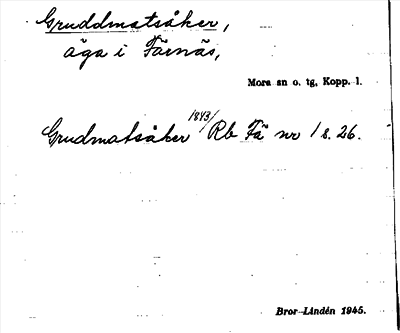 Gruddmatsåker,
äga i Färnäs,
Mora sn o. tg, Kopp. l.
Grudmatsåker 1843/ Rb Fä nr 1 s. 26.
Bror Lindén 1945.